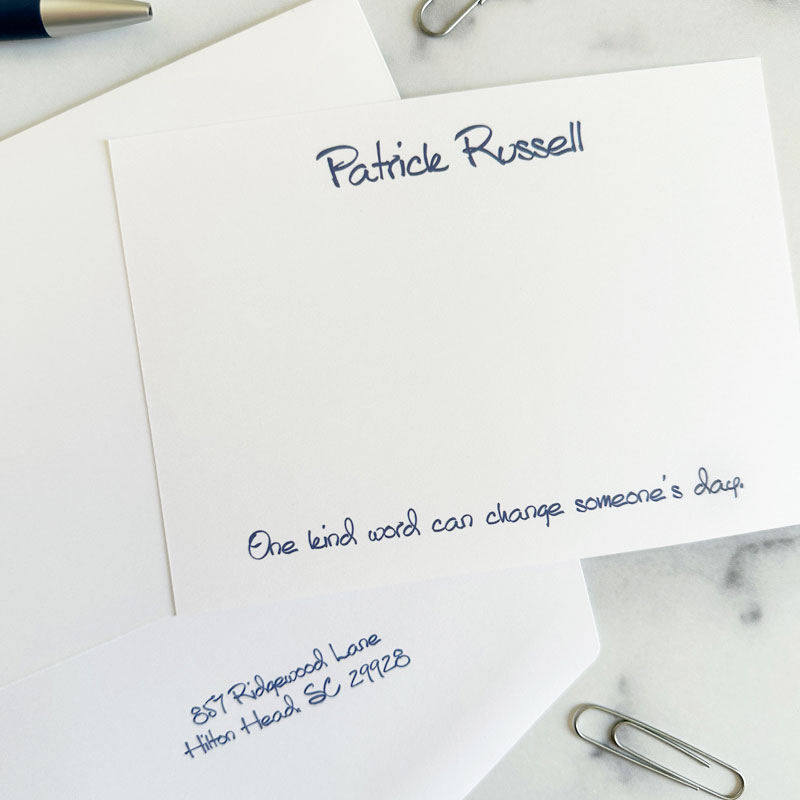 Patrick Russell
One kind word can change someone's day.
857 Ridgewood Lane
Hilton Head, SC 29928